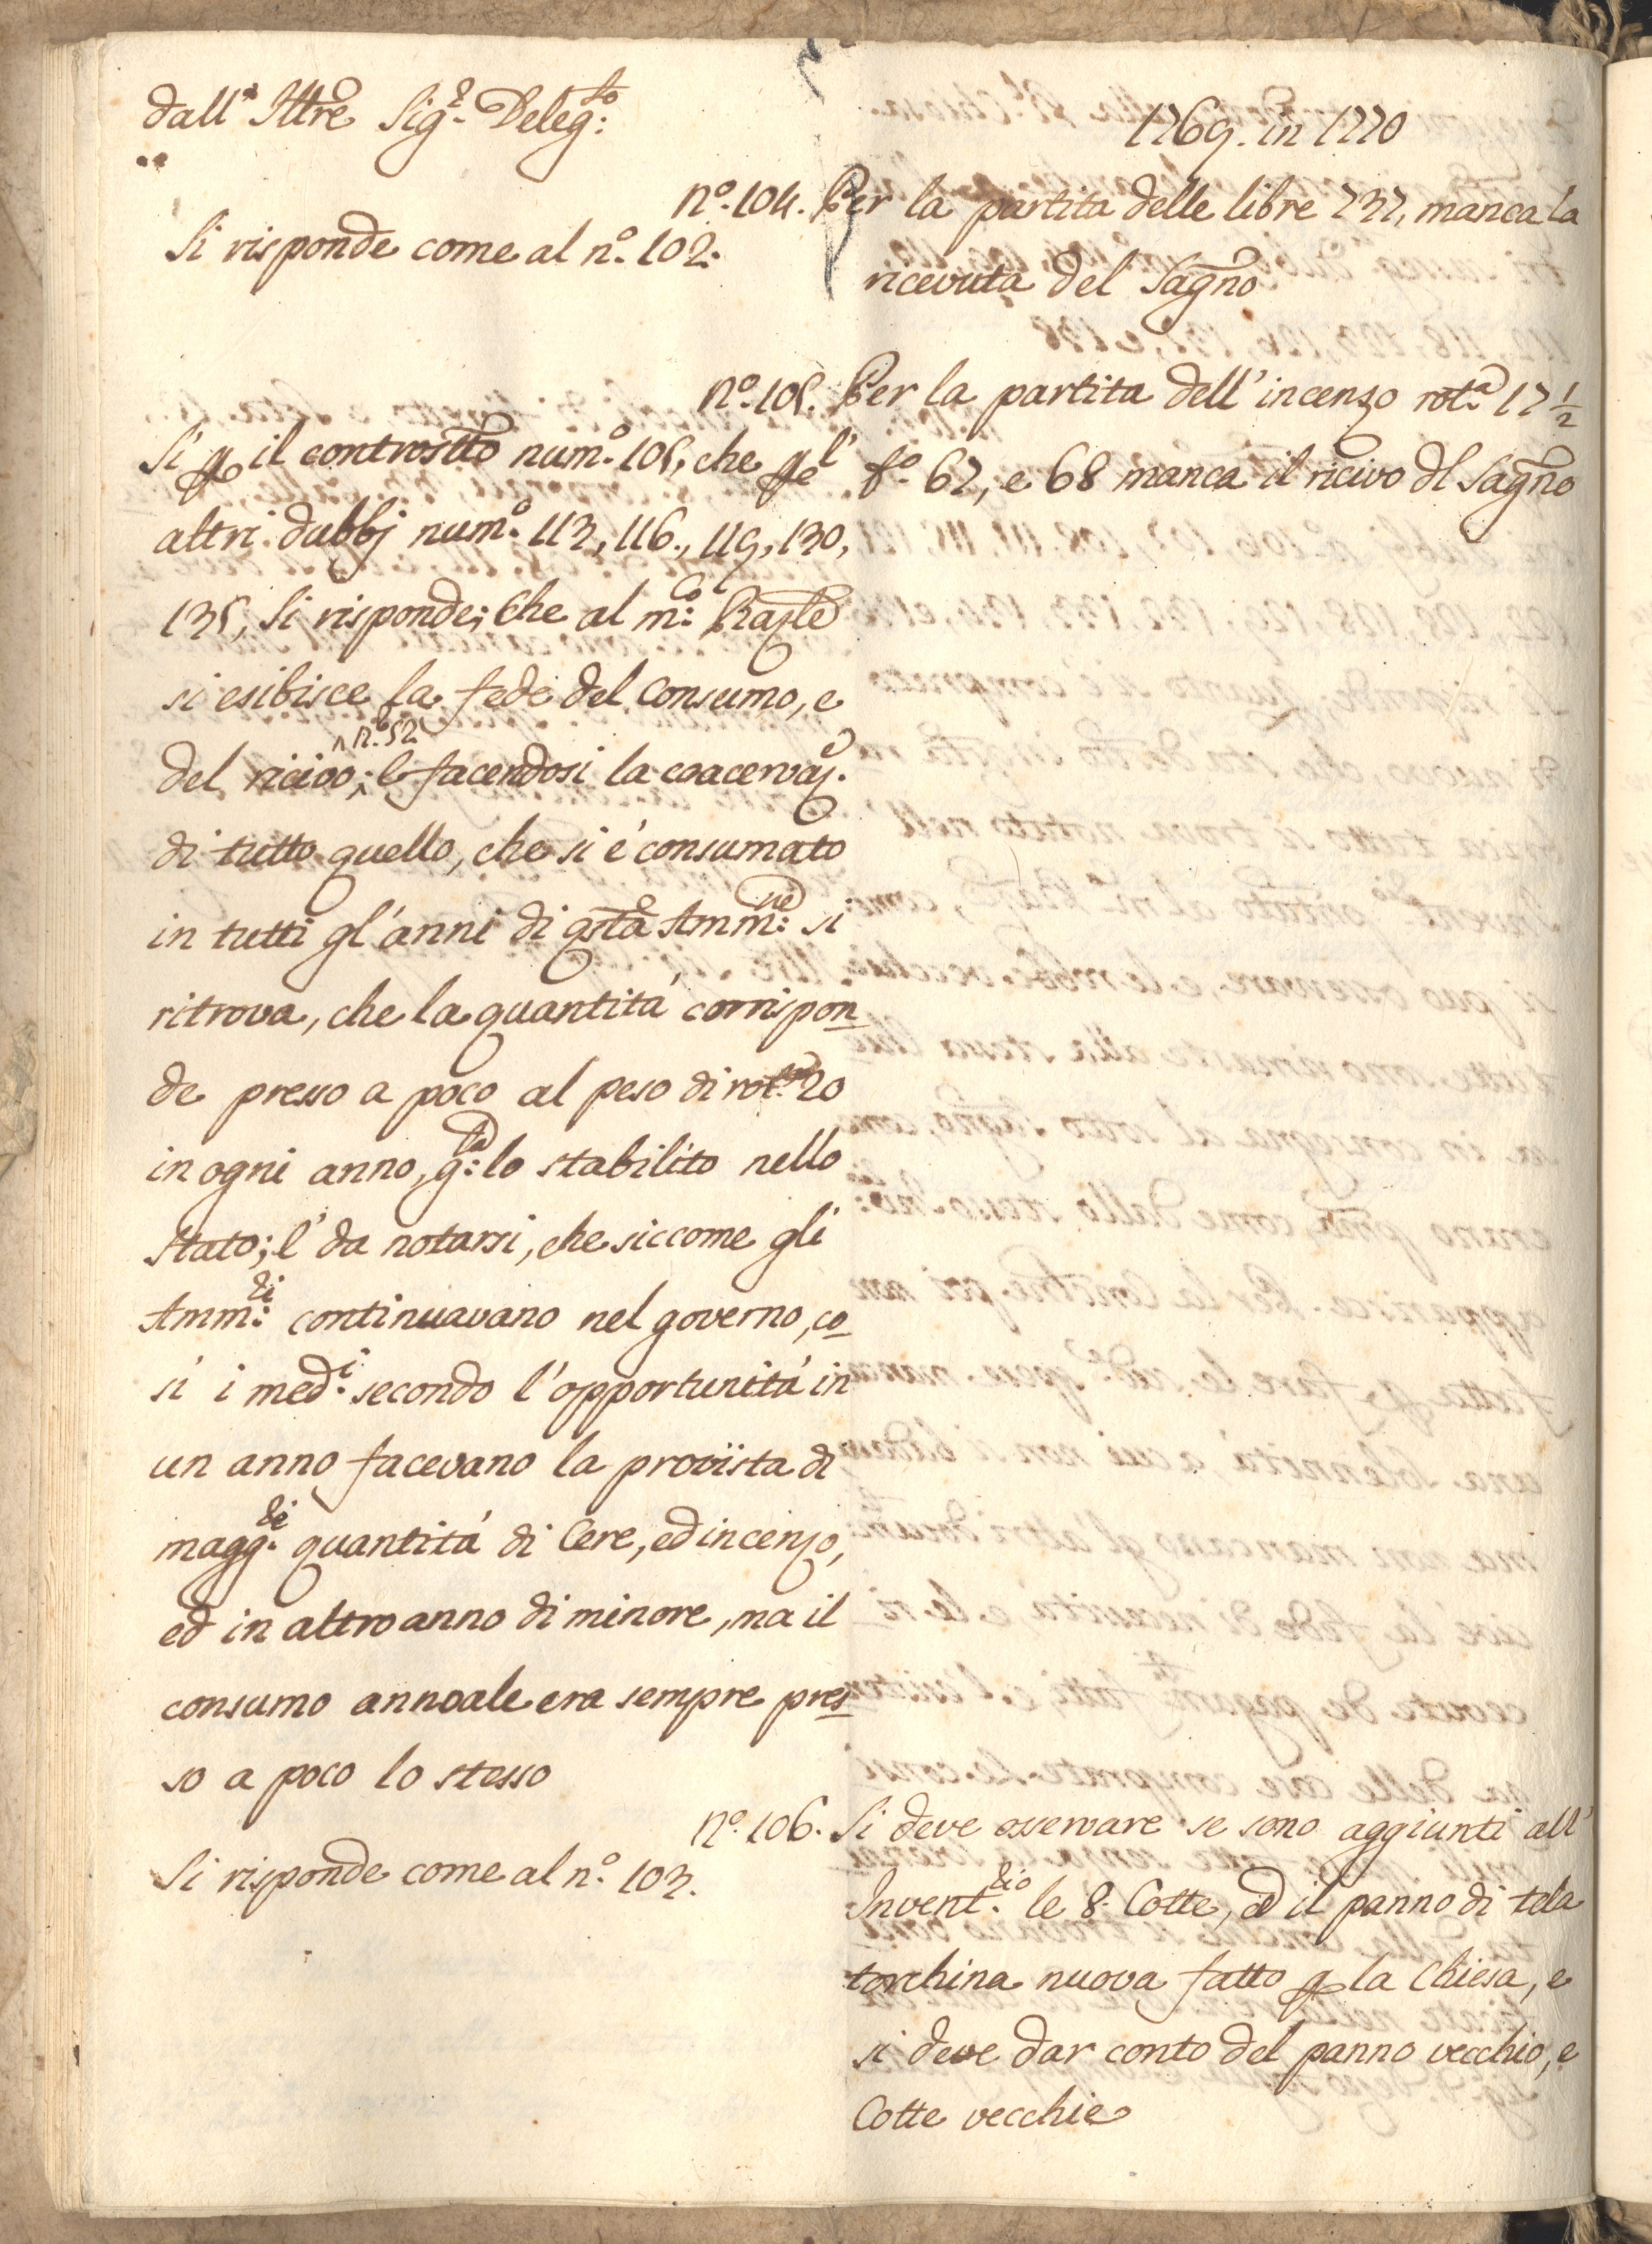 dall'Ill.re Sig.r Deleg.to
Si risponde come al n.o 102.
Sì p il controscritto num.o 105, che p l'
altri dubbj num.o 113, 116., 119, 130,
135, Si risponde; Che al m.co
si esibisce la fede del consumo, e
n.o 52
del ricivo; E facendosi la coacervaz.e
di tutto quello, che si è consumato
in tutti gl'anni di q.sta Amm.ne si
ritrova, che la quantità corrispon
de presso a poco al peso di rot.a 20
in ogni anno, g.ta lo stabilito nello
Stato; E' da notarsi, che siccome gli
Amm.ri continuavano nel governo, co
sì i med.i secondo l'opportunità in
un anno facevano la provista di
magg.re quantità di Cere, ed incenzo,
ed in altro anno di minore, ma il
consumo annoale era sempre pres
so a poco lo stesso
Si risponde come al n.o 103.
1769. in 1770
N.o 104. Per la partita delle libre 737, manca la
ricevuta del Sagno
N.o 105. Per la partita dell'incenzo rot.a 17 1/2
f.o 67, e 68 manca il ricivo dl Sagno
N.o 106. Si deve osservare se sono aggiunti all'
Invent.rio le 8. Cotte, ed il panno di tela
torchina nuova fatto p la Chiesa, e
si deve dar conto del panno vecchio, e
Cotte vecchie